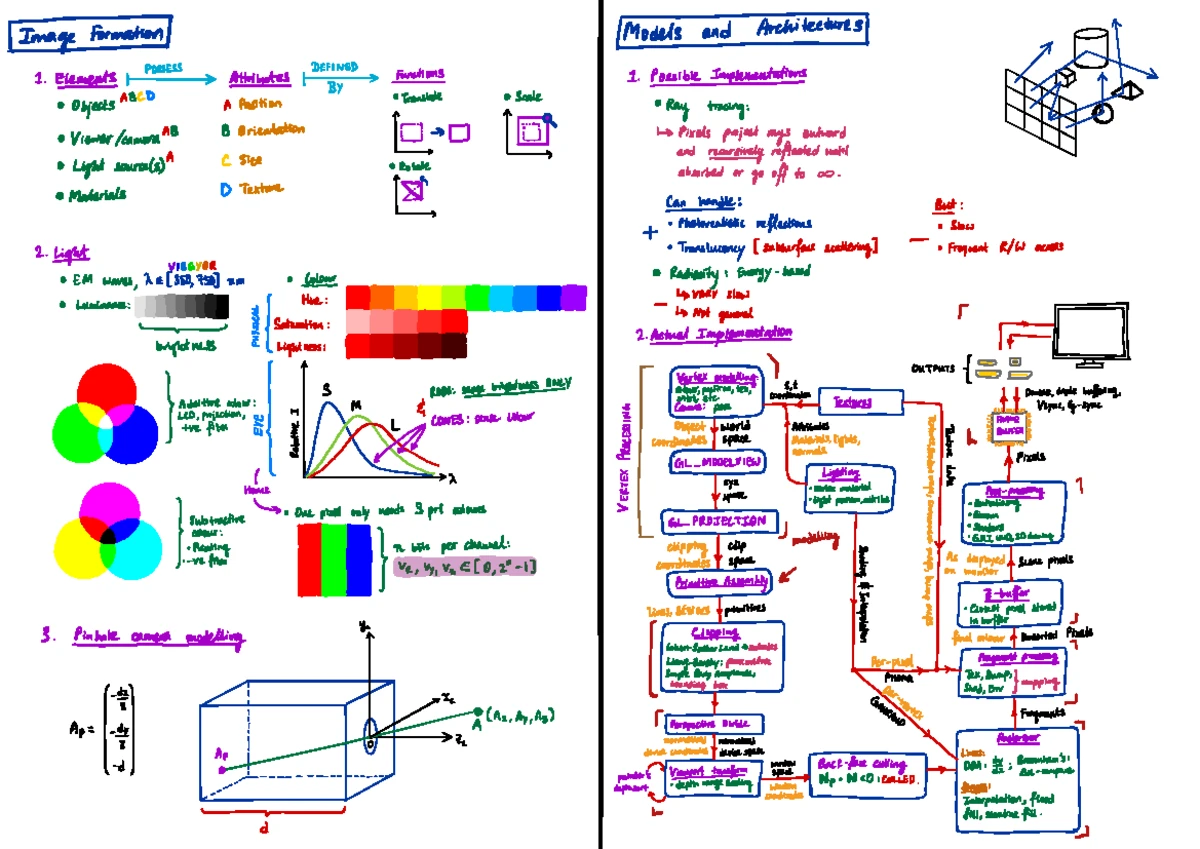 Image Formation
1. Elements
POSSESS
Attributes
DEFINED
By
Functions
• Objects ABCD
• Viewer/camera AB
• Light source(s) A
• Materials
A Position
B Orientation
C Size
D Texture
• Translate
• Scale
• Rotate
2. Light
VIBGYOR
• EM waves, λ ∈ [350, 750] nm
• Luminance:
brightness
• Colour
PHYSICAL
Hue:
Saturation:
Lightness:
Additive colour:
LED, projection,
+ve film
EYE
Relative I
S
M
L
λ
RODS: sense brightness ONLY
&
CONES: sense colour
Hence
• One pixel only needs 3 pri colours
Subtractive
colour:
• Printing
• -ve film
n bits per channel:
∈ [0, 2ⁿ-1]
3. Pinhole camera modelling
Ap =
-d
Ap
O
A (Ax, Ay, Az)
d
Models and Architectures
1. Possible Implementations
• Ray tracing:
↳ Pixels project rays outward
and recursively reflected until
absorbed or go off to ∞.
Can handle:
+
• Photorealistic reflections
• Translucency [subsurface scattering]
But:
—
• Slow
• Frequent R/W access
• Radiosity: Energy-based
—
↳ VERY slow
↳ Not general
2. Actual Implementation
VERTEX PROCESSING
Vertex modelling:
Camera: pose
s,t
coordinates
Textures
Object
coordinates
world
space
Attributes
Materials, lights,
normals
GL_MODELVIEW
eye
space
Lighting
• Vertex material
GL_PROJECTION
modelling
clipping
coordinates
clip
space
Primitive Assembly
primitives
Clipping
Cohen-Sutherland
Liang-Barsky: parametric
bounding box
Perspective Divide
normalised
device coordinates
normalised
device space
Viewport transform
• depth range scaling
window
space
window
coordinates
Back-face culling
Np · N < 0 : CULLED.
Shading & Interpolation
Texture data
Per-pixel
Phong
Per-vertex
Gouraud
Rasterizer
Lines:
DDA:
; Bresenham's:
Interpolation, flood
fill, scanline fill.
Fragments
Fragment processing
Tex, Bump,
mapping
final colour
Unsorted Pixels
Z-buffer
• Closest pixel stored
in buffer
As displayed
on monitor
Scene pixels
Post-processing
• Antialiasing
Pixels
FRAME
BUFFER
OUTPUTS
Double, triple buffering,
Vsync, G-sync